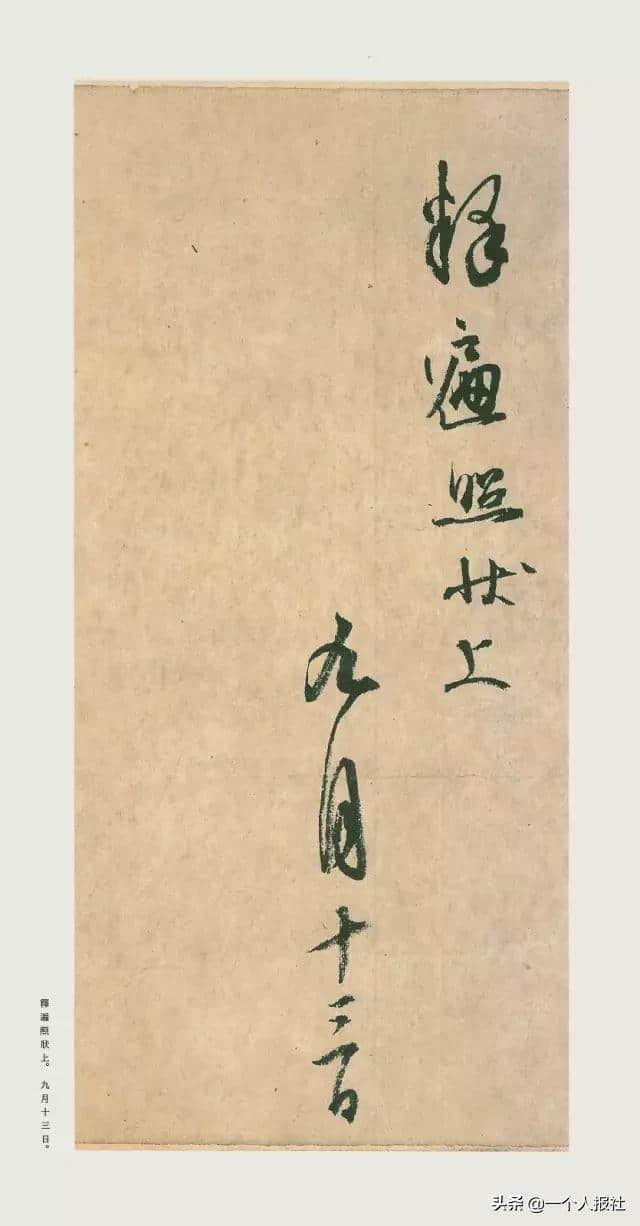 釋遍照状上
九月十三日
釋遍照狀上。九月十三日。
头条@一个人报社